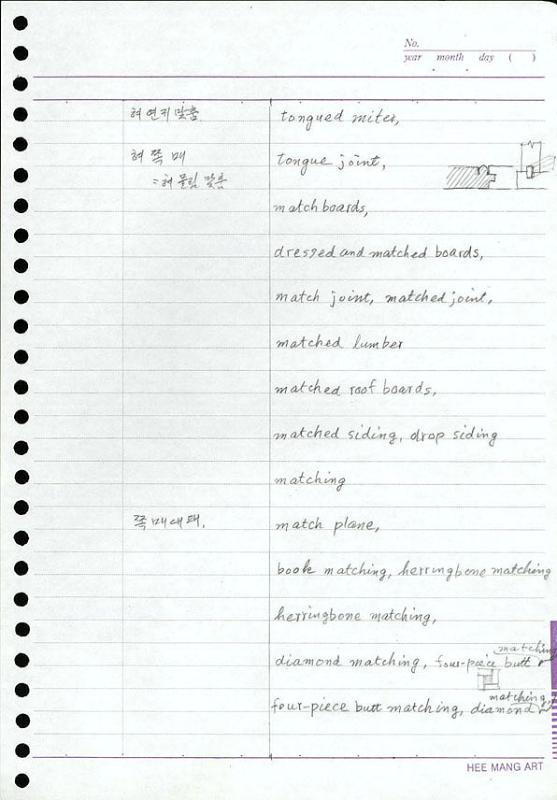 No.
year month day ( )
혀연귀맞춤 tongued miter,
혀쪽매 tongue joint,
=혀물림맞춤
matchboards,
dressed and matched boards,
match joint, matched joint,
matched lumber
matched roof boards,
matched siding, drop siding
matching
쪽매대패, match plane,
book matching, herringbone matching
herringbone matching,
diamond matching, four-piece butt matching
four-piece butt matching, diamond matching,
HEE MANG ART